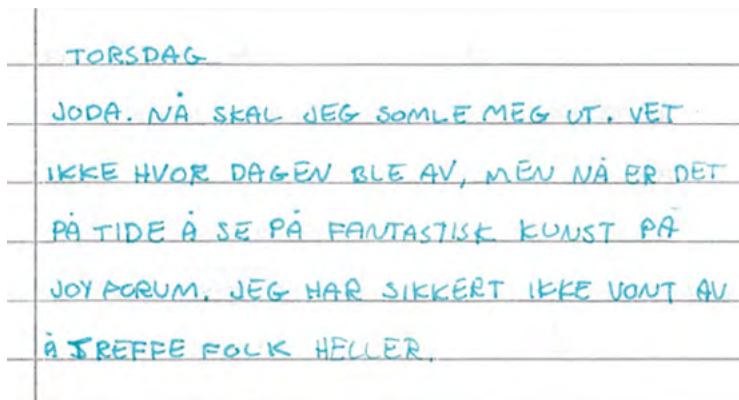 TORSDAG
JODA. NÅ SKAL JEG SOMLE MEG UT. VET
IKKE HVOR DAGEN BLE AV, MEN NÅ ER DET
PÅ TIDE Å SE PÅ FANTASTISK KUNST PÅ
JOY FORUM. JEG HAR SIKKERT IKKE VONT AV
Å TREFFE FOLK HELLER.